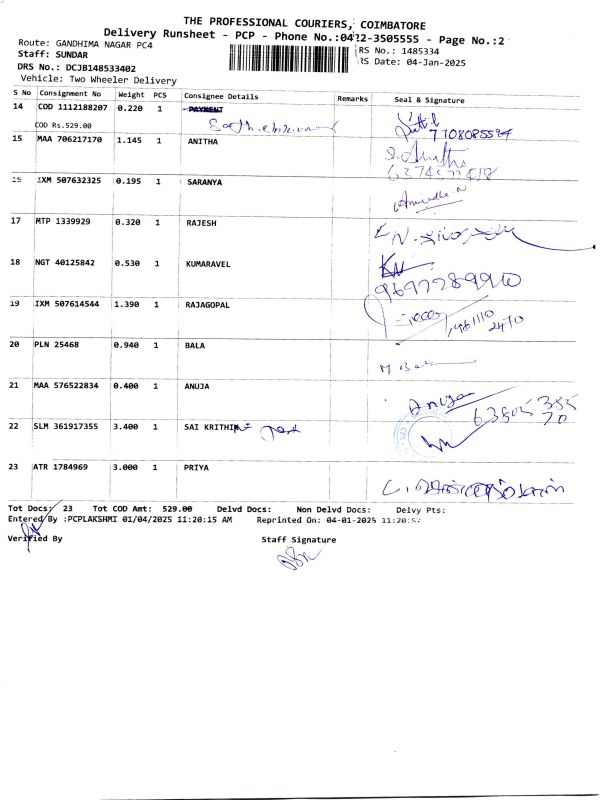 THE PROFESSIONAL COURIERS, COIMBATORE
Delivery Runsheet - PCP - Phone No.:0422-3505555 - Page No.:2
Route: GANDHIMA NAGAR PC4
RS No.: 1485334
Staff: SUNDAR
RS Date: 04-Jan-2025
DRS No.: DCJB148533402
Vehicle: Two Wheeler Delivery
S No Consignment No Weight PCS Consignee Details Remarks Seal & Signature
14 COD 1112188207 0.220 1 PAYMENT
COD Rs.529.00
7708085594
15 MAA 706217170 1.145 1 ANITHA
S. Anitha
16 IXM 507632325 0.195 1 SARANYA
Anuradha.N
17 MTP 1339929 0.320 1 RAJESH
18 NGT 40125842 0.530 1 KUMARAVEL
9677789910
19 IXM 507614544 1.390 1 RAJAGOPAL
20 PLN 25468 0.940 1 BALA
21 MAA 576522834 0.400 1 ANUJA
Anuja
63805 385
70
22 SLM 361917355 3.400 1 SAI KRITHIK
23 ATR 1784969 3.000 1 PRIYA
Tot Docs: 23 Tot COD Amt: 529.00 Delvd Docs: Non Delvd Docs: Delvy Pts:
Entered By :PCPLAKSHMI 01/04/2025 11:20:15 AM Reprinted On: 04-01-2025 11:20:57
Verified By Staff Signature